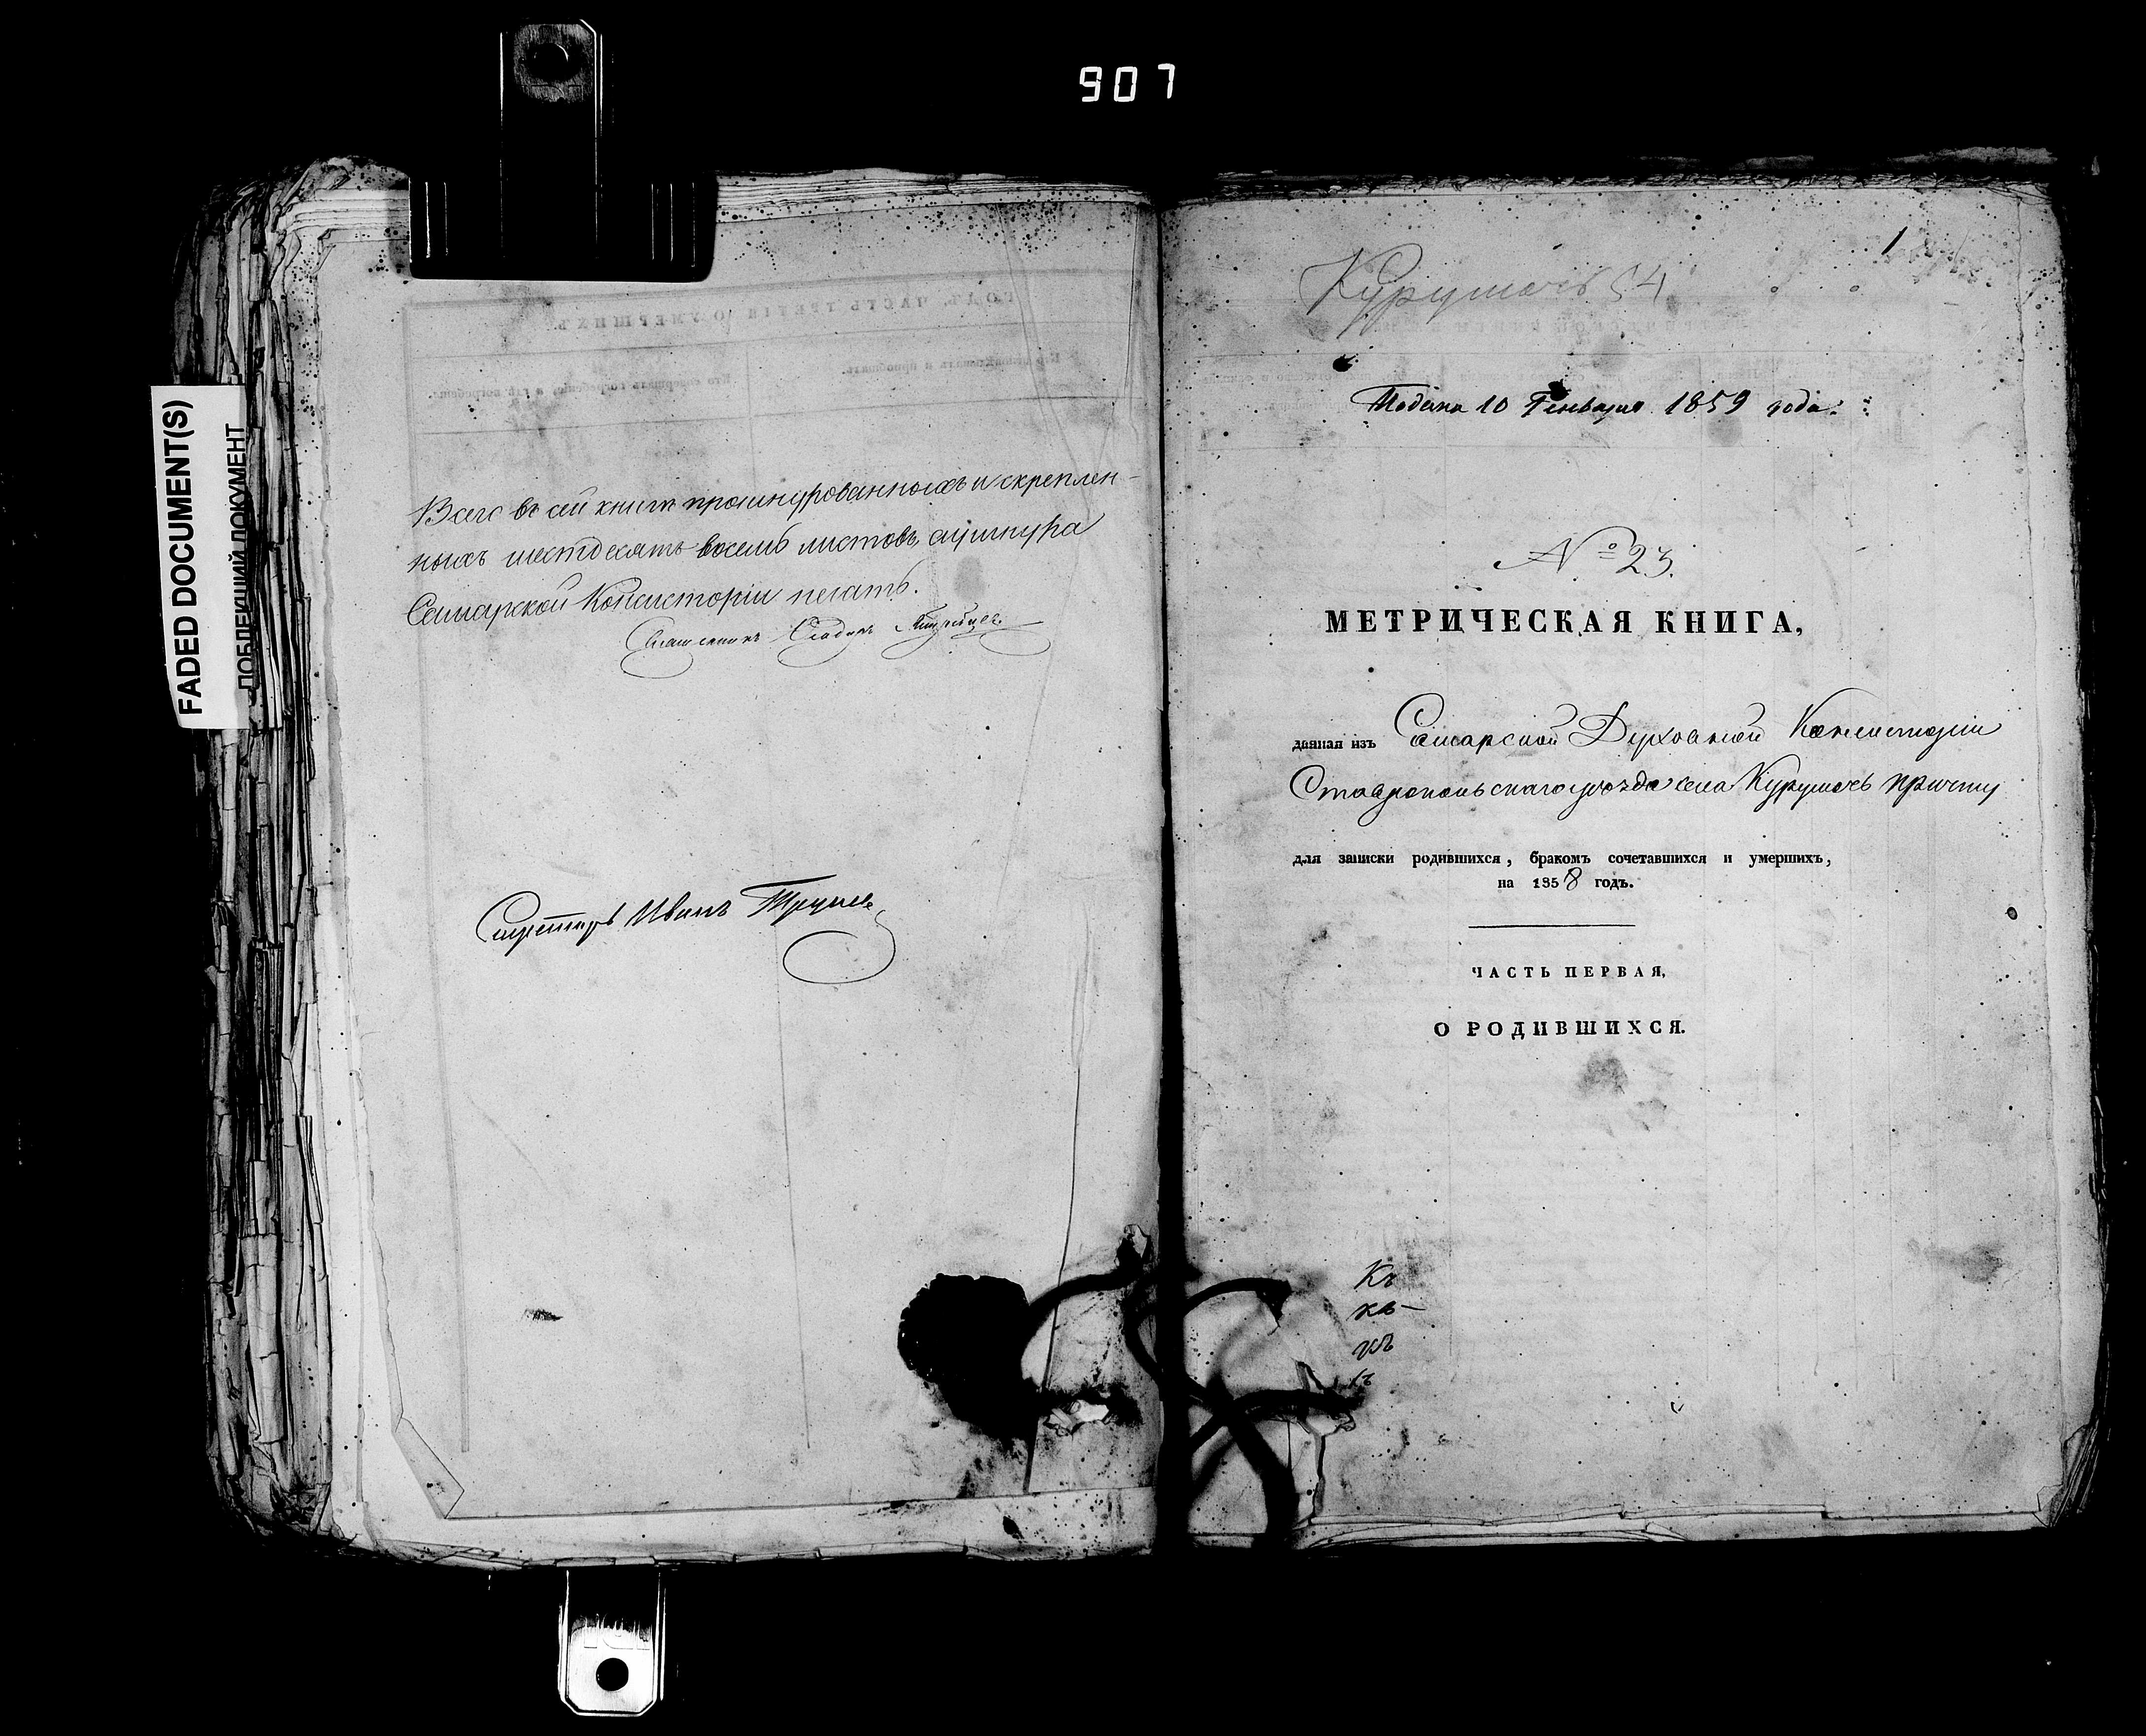 907
FADED DOCUMENT(S)
ПОБЛЕКШИЙ ДОКУМЕНТ
Всего въ сей книгѣ прошнурованныхъ и скреплен-
ныхъ шестдесятъ восемь листовъ, а у шнура
Самарской Консисторіи печать.
Священникъ
Секретарь Иванъ
1
Курумочь 54
Подана 10 Генваря 1859 года.
№ 23.
МЕТРИЧЕСКАЯ КНИГА,
данная изъ Самарской Духовной Консисторіи
Ставропольскаго уѣзда села Курумочь причту
для записки родившихся, бракомъ сочетавшихся и умершихъ,
на 1858 годъ.
ЧАСТЬ ПЕРВАЯ,
О РОДИВШИХСЯ.
Къ